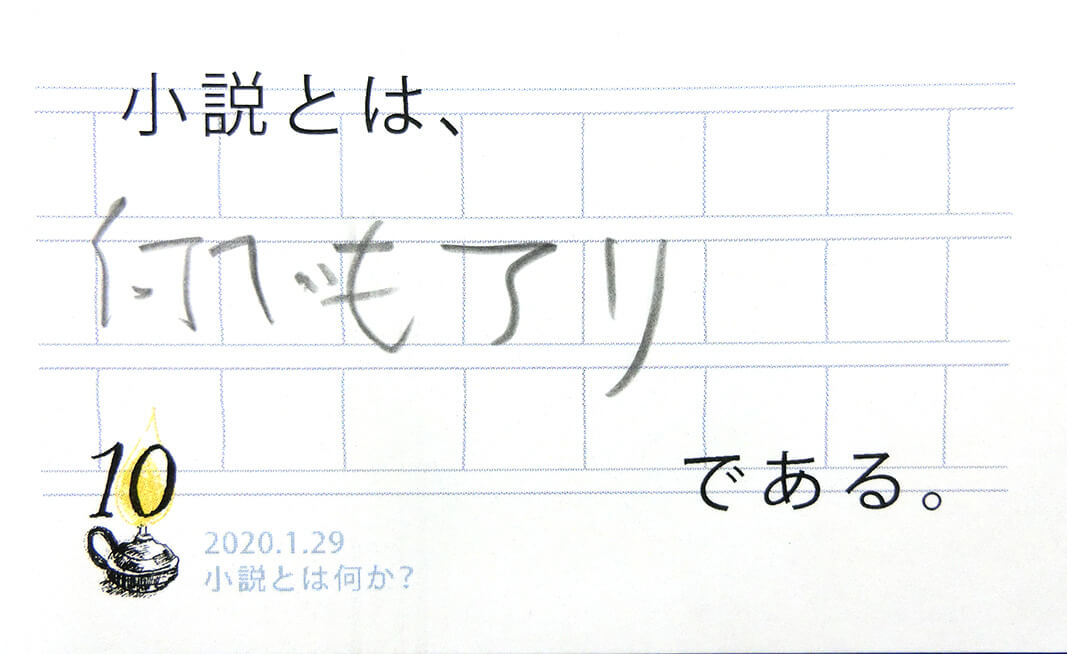 小説とは、
何でもアリ
である。
10
2020.1.29
小説とは何か?